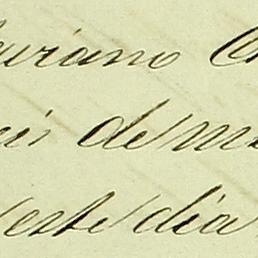 uriano
de m
este dia